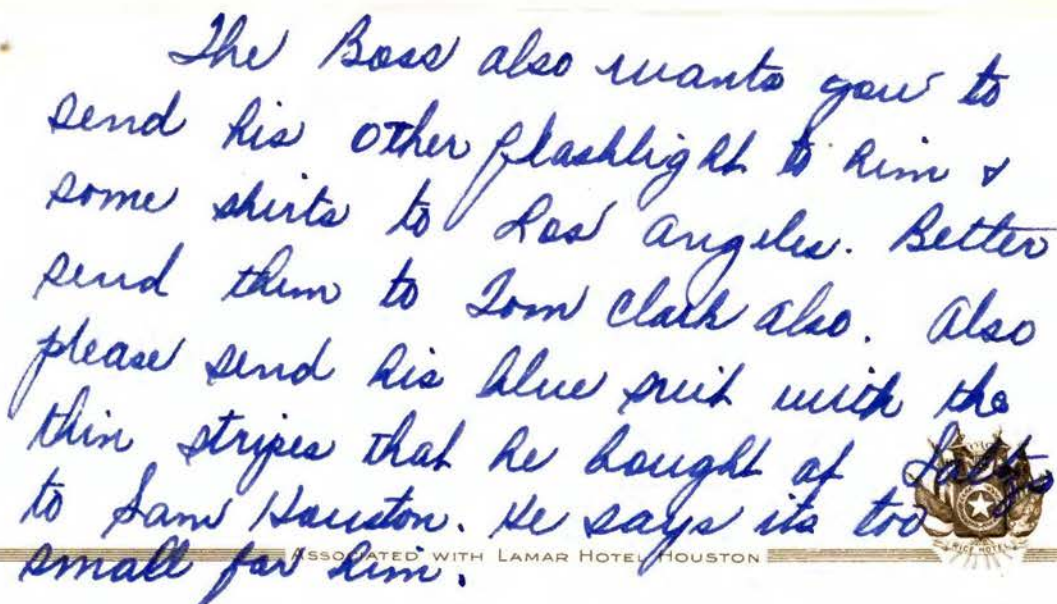 The Boss also wants you to
send his other flashlight to him &
some shirts to Los Angeles. Better
send them to Tom Clark also. Also
please send his blue suit with the
thin stripes that he bought at
to Sam Houston. He says its too
small for him.
ASSOCIATED WITH LAMAR HOTEL HOUSTON
RICE HOTEL